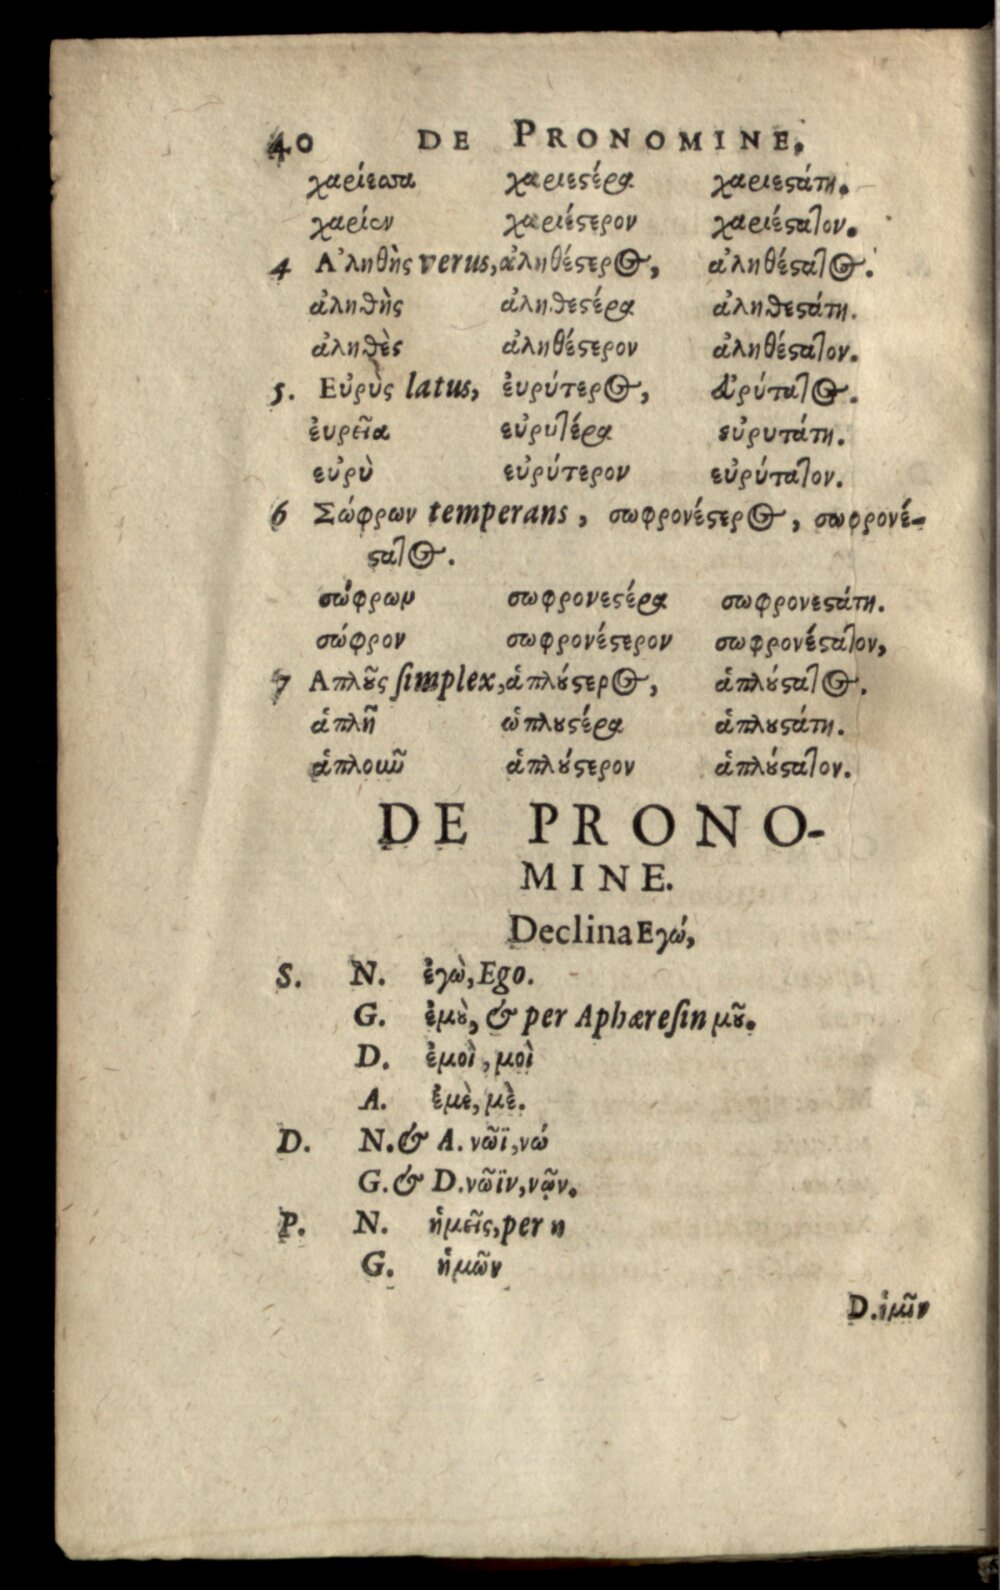 40 DE PRONOMINE.
χαρίεσσα χαριεϛέρα χαριεϛάτη.
χαρίεν χαριέϛερον χαριέϛατον.
4 Α᾿ληθὴς verus, ἀληθέϛερος, ἀληθέϛατος.
ἀληθὴς ἀληθεϛέρα ἀληθεϛάτη.
ἀληθὲς ἀληθέϛερον ἀληθέϛατον.
5. Εὐρὺς latus, ἐυρύτερος, ἐυρύτατος.
ἐυρεῖα εὐρυτέρα εὐρυτάτη.
εὐρὺ εὐρύτερον εὐρύτατον.
6 Σώφρων temperans, σωφρονέϛερος, σωφρονέ-
ϛατος.
σώφρων σωφρονεϛέρα σωφρονεϛάτη.
σώφρον σωφρονέϛερον σωφρονέϛατον,
7 Απλȣ͂ς ſimplex, ἁπλȣ́ϛερος, ἁπλȣ́ϛατος.
ἁπλῆ ἁπλȣϛέρα ἁπλȣϛάτη.
ἁπλȣ́ϛερον ἁπλȣ́ϛατον.
DE PRONO-
MINE.
Declina Εγώ,
S. N. ἐγὼ, Ego.
G. ἐμȣ̀, & per Aphæreſin μȣ͂.
D. ἐμοὶ, μοὶ
A. ἐμὲ, μὲ.
D. N. & A. νῶϊ, νώ
G. & D. νῶϊν, νῷν.
P. N. ἡμεῖς, per η
G. ἡμῶν
D. ἡμῖν